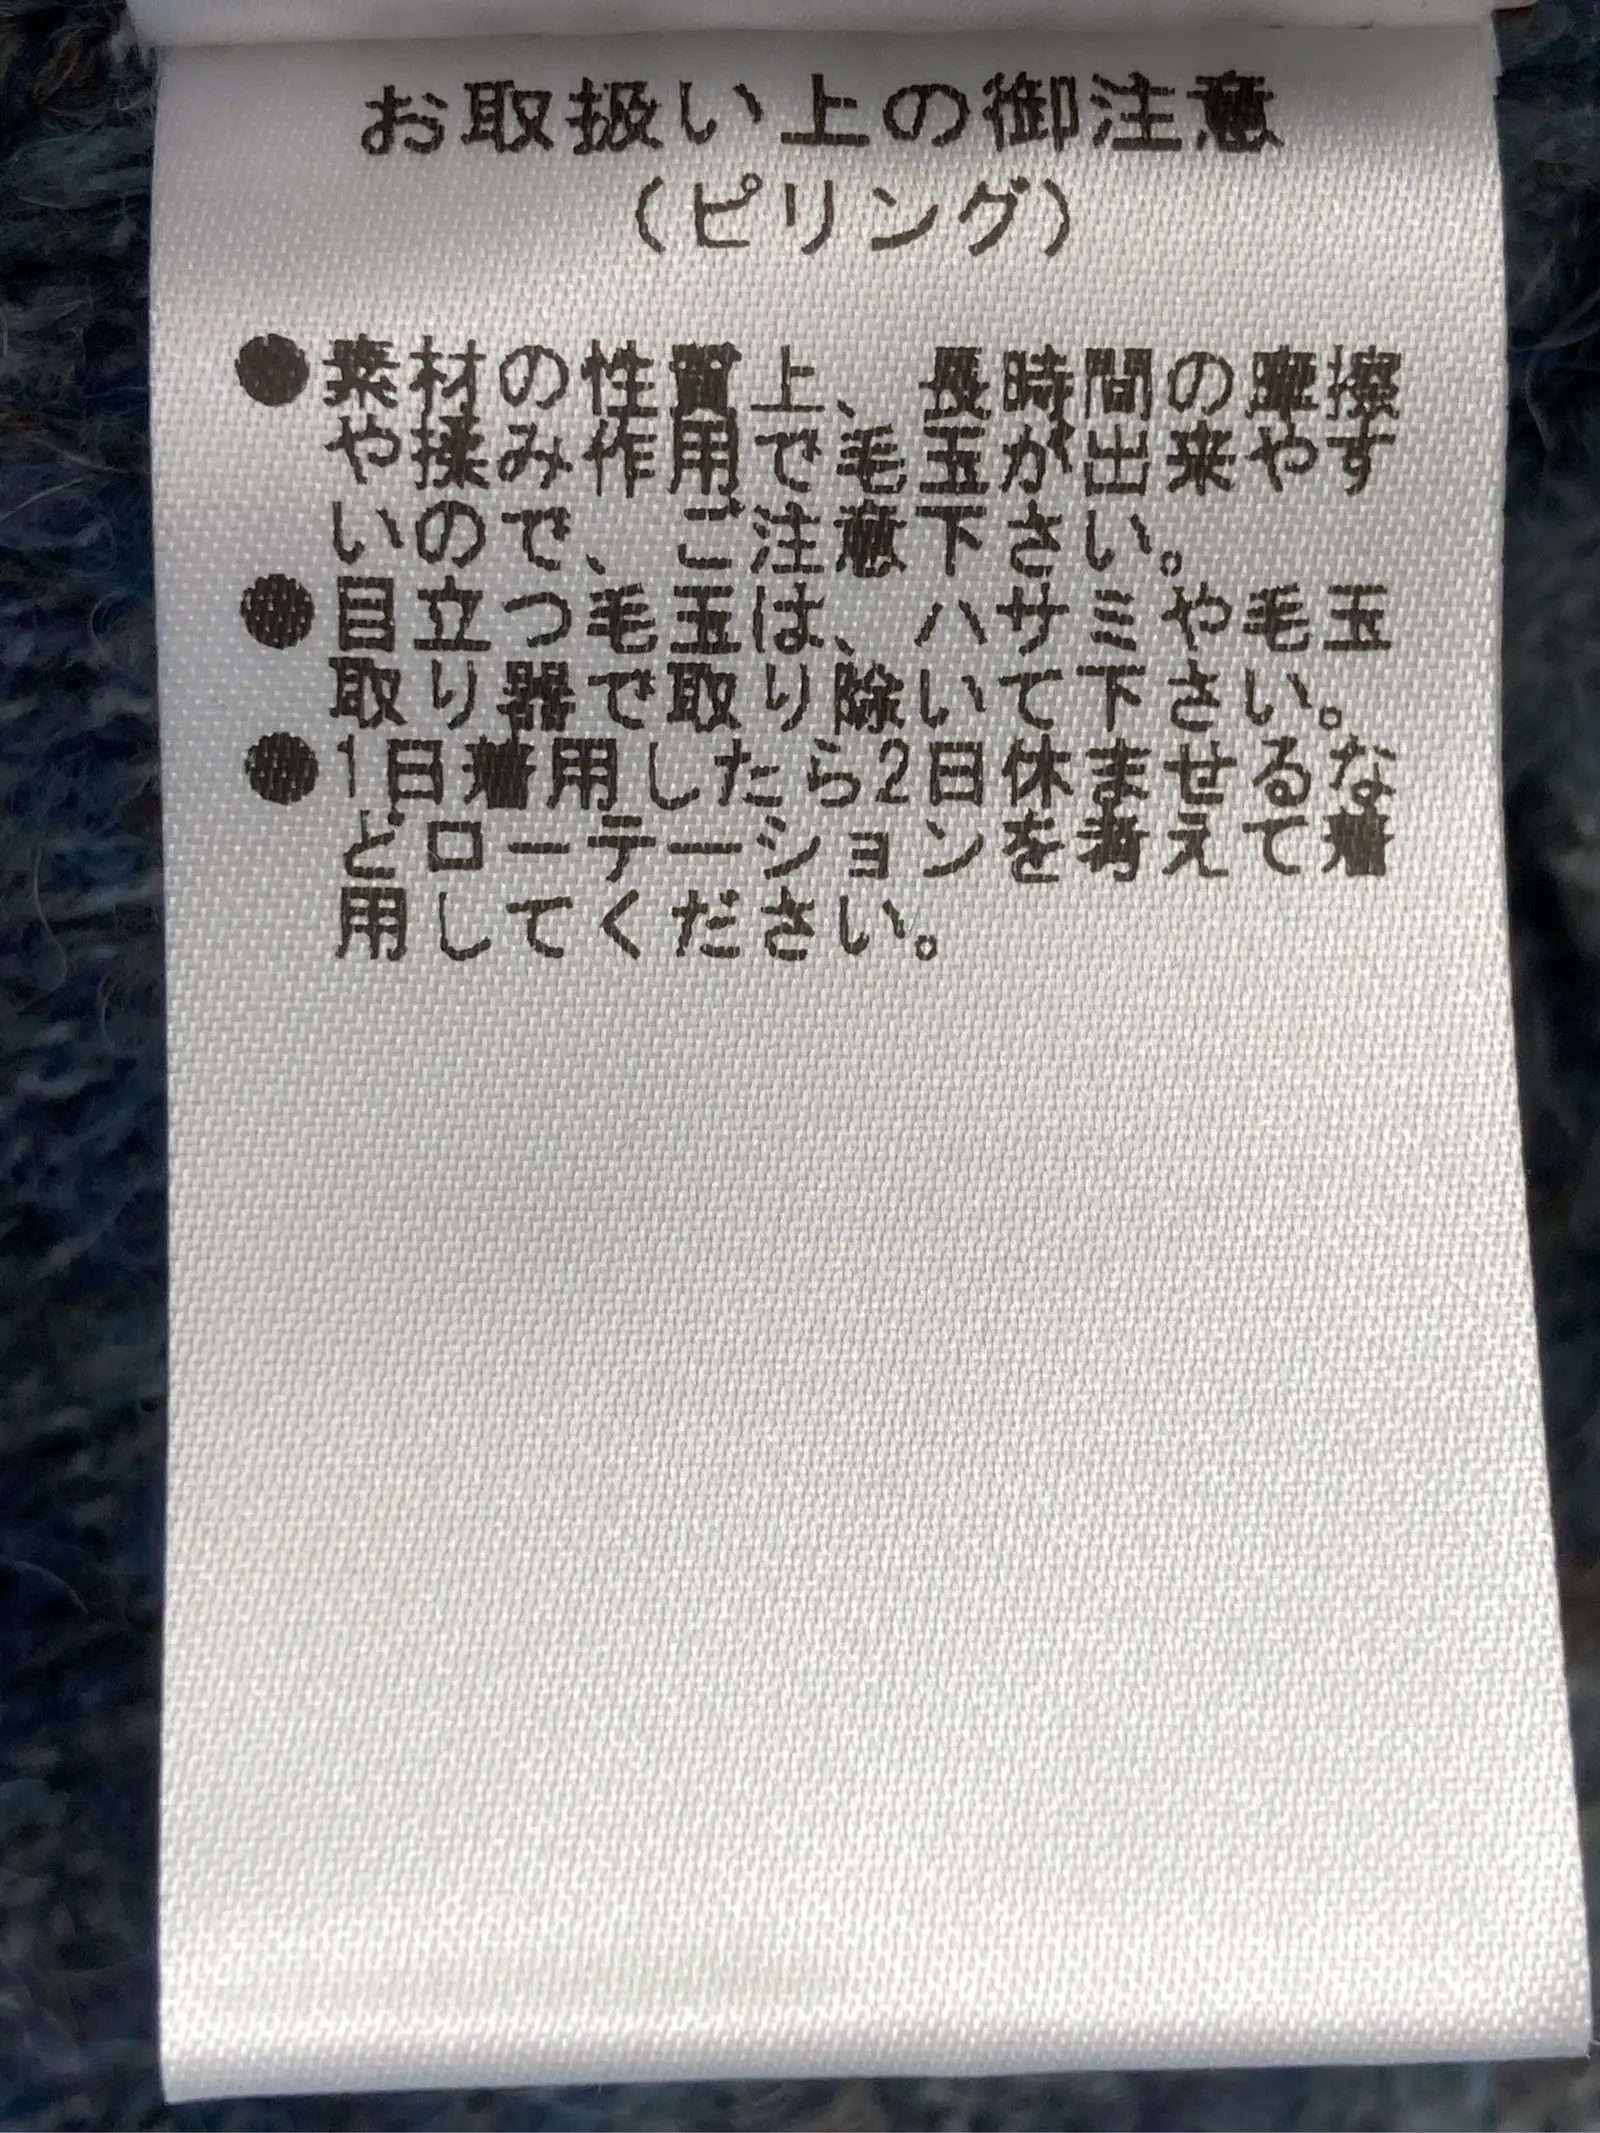 お取扱い上の御注意
(ピリング)
●素材の性質上、長時間の摩擦
や揉み作用で毛玉が出来やす
いので、ご注意下さい。
●目立つ毛玉は、ハサミや毛玉
取り器で取り除いて下さい。
●1日着用したら2日休ませるな
どローテーションを考えて着
用してください。